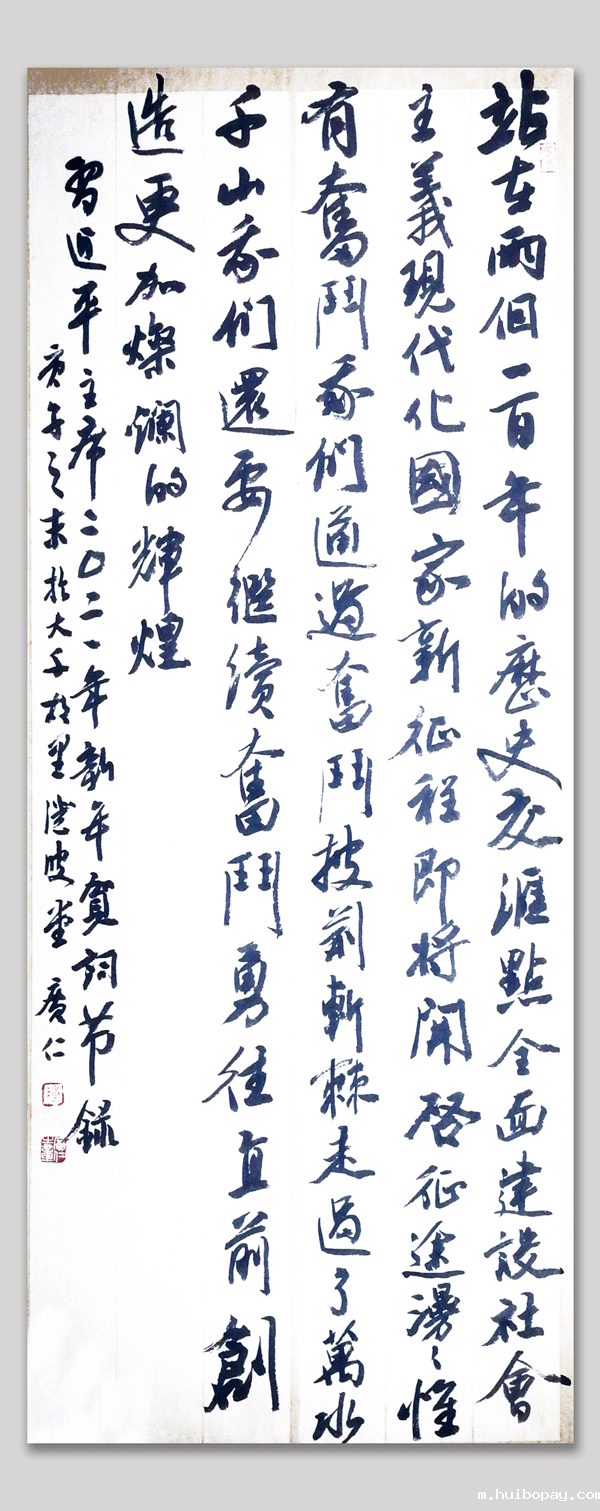 站在兩個一百年的歷史交滙點全面建設社會
主義現代化國家新征程即將開啓征途漫〻惟
有奮鬥我們通過奮鬥披荊斬棘走過了萬水
千山我們還要繼續奮鬥勇往直前創
造更加燦斕的輝煌
習近平主席二〇二一年新年賀詞节録
庚子之末於大千故里 廣仁
m.huibopay.com